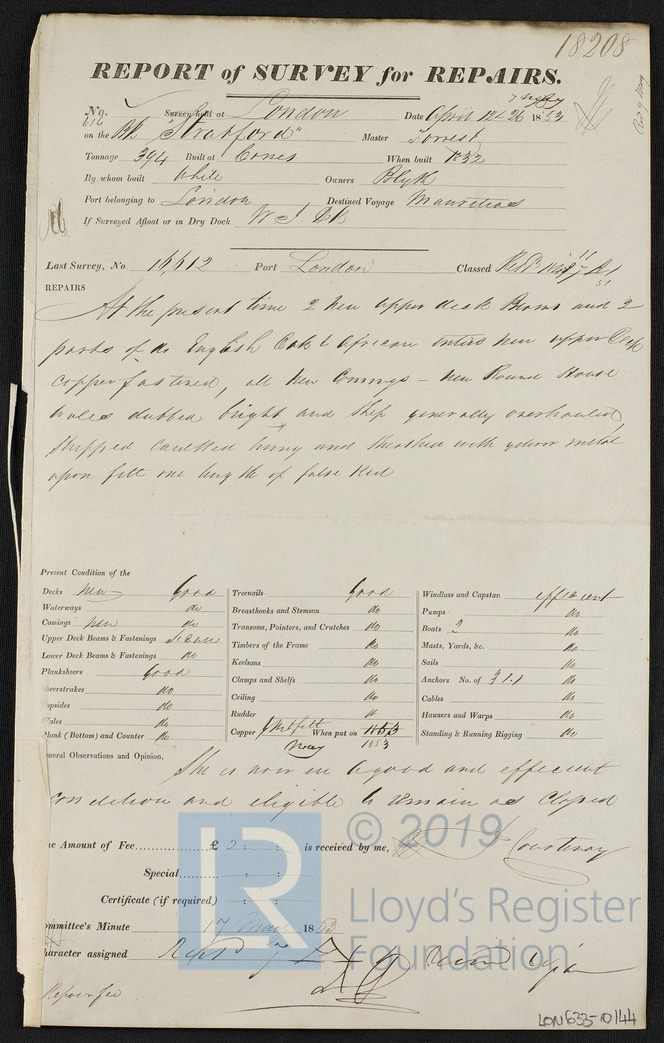 18208
REPORT of SURVEY for REPAIRS.
No. 616 Survey held at London Date April 12 & 26 1853
on the Bk "Stratford" Master Forrest
Tonnage 394 Built at Cowes When built 1832
By whom built White Owners Blyth
Port belonging to London Destined Voyage Mauritius
If Surveyed Afloat or in Dry Dock W I Dk
Last Survey, No. 16,612 Port London Classed
REPAIRS
At the present time 2 new upper deck Beams and 2
parts of do English Oak & African entire new upper Deck
copper fastened, all new Comings - new Round House
wales dubbed bright and ship generally overhauled
stripped caulked and sheathed with yellow metal
upon felt one length of false Keel
Present Condition of the
Decks New Good
Waterways do
Comings New do
Upper Deck Beams & Fastenings
Lower Deck Beams & Fastenings do
Planksheers Good
heerstrakes do
opsides do
Wales do
Plank (Bottom) and Counter do
Treenails Good
Breasthooks and Stemson do
Transoms, Pointers, and Crutches do
Timbers of the Frame do
Keelsons do
Clamps and Shelfs do
Ceiling do
Rudder do
Copper When put on 1853
1853
Windlass and Capstan efficient
Pumps do
Boats 2 do
Masts, Yards, &c. do
Sails do
Anchors No. of 3.1.1 do
Cables do
Hawsers and Warps do
Standing & Running Rigging do
eneral Observations and Opinion,
She is now in a good and efficient
condition and eligible to remain as Classed
he Amount of Fee £ 2 : : is received by me, Courtenay
Special : :
Certificate (if required) : :
ommittee's Minute 17 May 1853
haracter assigned
Repair fee
LR
© 2019
Lloyd's Register
Foundation
LON633-0144